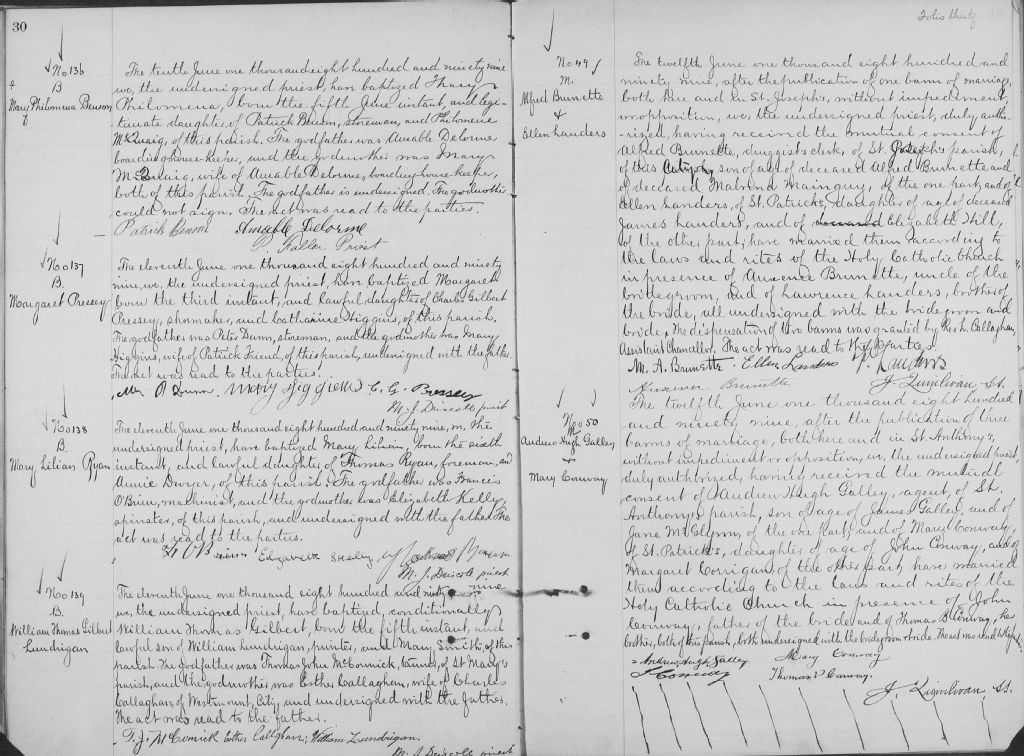 30
No 136
B
Mary Philomena Benson
The tenth June one thousand eight hundred and ninety nine
we, the undersigned priest, have baptized Mary
Philomena, born the fifth June instant, and legi-
timate daughter of Patrick Benson, storeman, and Philomene
McQuaig, of this parish. The godfather was Amable Delorme
boardinghouse-keeper, and the godmother was Mary
McQuaig, wife of Amable Delorme, boardinghouse-keeper,
both of this parish. The godfather is undersigned. The godmother
could not sign. The act was read to the parties.
Patrick Benson Amable Delorme
Faller Priest
No 137
B.
Margaret Pressey
The eleventh June one thousand eight hundred and ninety
nine, we, the undersigned priest, have baptized Margaret
born the third instant, and lawful daughter of Charles Gilbert
Pressey, shoemaker, and Catharine Higgins, of this parish.
The godfather was Peter Dunn, storeman, and the godmother was Mary
Higgins, wife of Patrick Friend, of this parish, undersigned with the father.
The act was read to the parties.
P Dunn Mary Higgins C. G. Pressey
M. J. Driscoll priest
No 138
B.
Mary Lilian Ryan
The eleventh June one thousand eight hundred and ninety nine, we, the
undersigned priest, have baptized Mary Lilian, born the sixth
instant, and lawful daughter of Thomas Ryan, foreman, and
Annie Dwyer, of this parish. The godfather was Francis
O'Brien, machinist, and the godmother was Elizabeth Kelly,
spinster, of this parish, and undersigned with the father. The
act was read to the parties.
M. J. Driscoll priest
No 139
B.
William Thomas Gilbert
Lundrigan
The eleventh June one thousand eight hundred and ninety nine
we, the undersigned priest, have baptized, conditionally
William Thomas Gilbert, born the fifth instant, and
lawful son of William Lundrigan, printer, and Mary Smith, of this
parish. The godfather was Thomas John McCormick, of St Mary's
parish, and the godmother was Esther Callaghan, wife of Charles
Callaghan, of Westmount, City, and undersigned with the father.
The act was read to the father.
T. J. McComick Esther Callghan, William Lundrigan.
M. J. Driscoll priest
Folio thirty
No 49
M.
Alfred Brunette
&
Ellen Landers
The twelfth June one thousand eight hundred and
ninety, nine, after the publication of one bann of marriage,
both here and in St. Joseph's, without impediment,
or opposition, we, the undersigned priest, duly autho-
rized, having received the mutual consent of
Alfred Brunette, druggist's clerk, of St. Joseph's parish,
of this City, son of age of deceased Alfred Brunette and
of deceased Malvina Mainguy, of the one part, and of
Ellen Landers, of St. Patrick's, daughter of age of deceased
James Landers, and of Elizabeth Hill,
of the other part, have married them according to
the laws and rites of the Holy Catholic Church
in presence of Arsene Brunette, uncle of the
bridegroom, and of Lawrence Landers, brother of
the bride, all undersigned with the bridegroom and
bride. The dispensation of two banns was granted by Rev L. Callaghan,
Assistant Chancellor. The act was read to the parties.
M. A. Brunette Ellen Landers Landers
Brunette J. Quinlivan St.
No 50
M
Andrew Hugh Galley,
&
Mary Conway
The twelfth June one thousand eight hundred
and ninety nine, after the publication of three
banns of marriage, both here and in St. Anthony's,
without impediment or opposition, we, the undersigned priest,
duly authorized, having received the mutual
consent of Andrew Hugh Galley, agent, of St.
Anthony's parish, son of age of James Galley, and of
Jane McGlynn, of the one part, and of Mary Conway,
of St. Patrick's, daughter of age of John Conway, and of
Margaret Corrigan, of the other part, have married
them according to the laws and rites of the
Holy Catholic Church in presence of John
Conway, father of the bride and of Thomas P. Conway, her
brother, both of this parish, both undersigned with the bridegroom & bride. The act was read
Andrew Hugh Galley Mary Conway
J Conway Thomas P. Conway.
J. Quinlivan, St.